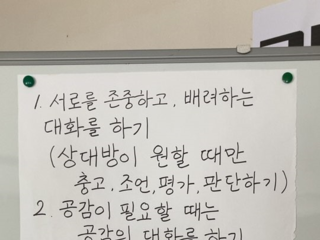 1. 서로를 존중하고, 배려하는
대화를 하기
(상대방이 원할 때만
충고, 조언, 평가, 판단하기)
2. 공감이 필요할 때는
공감의 대화를 하기